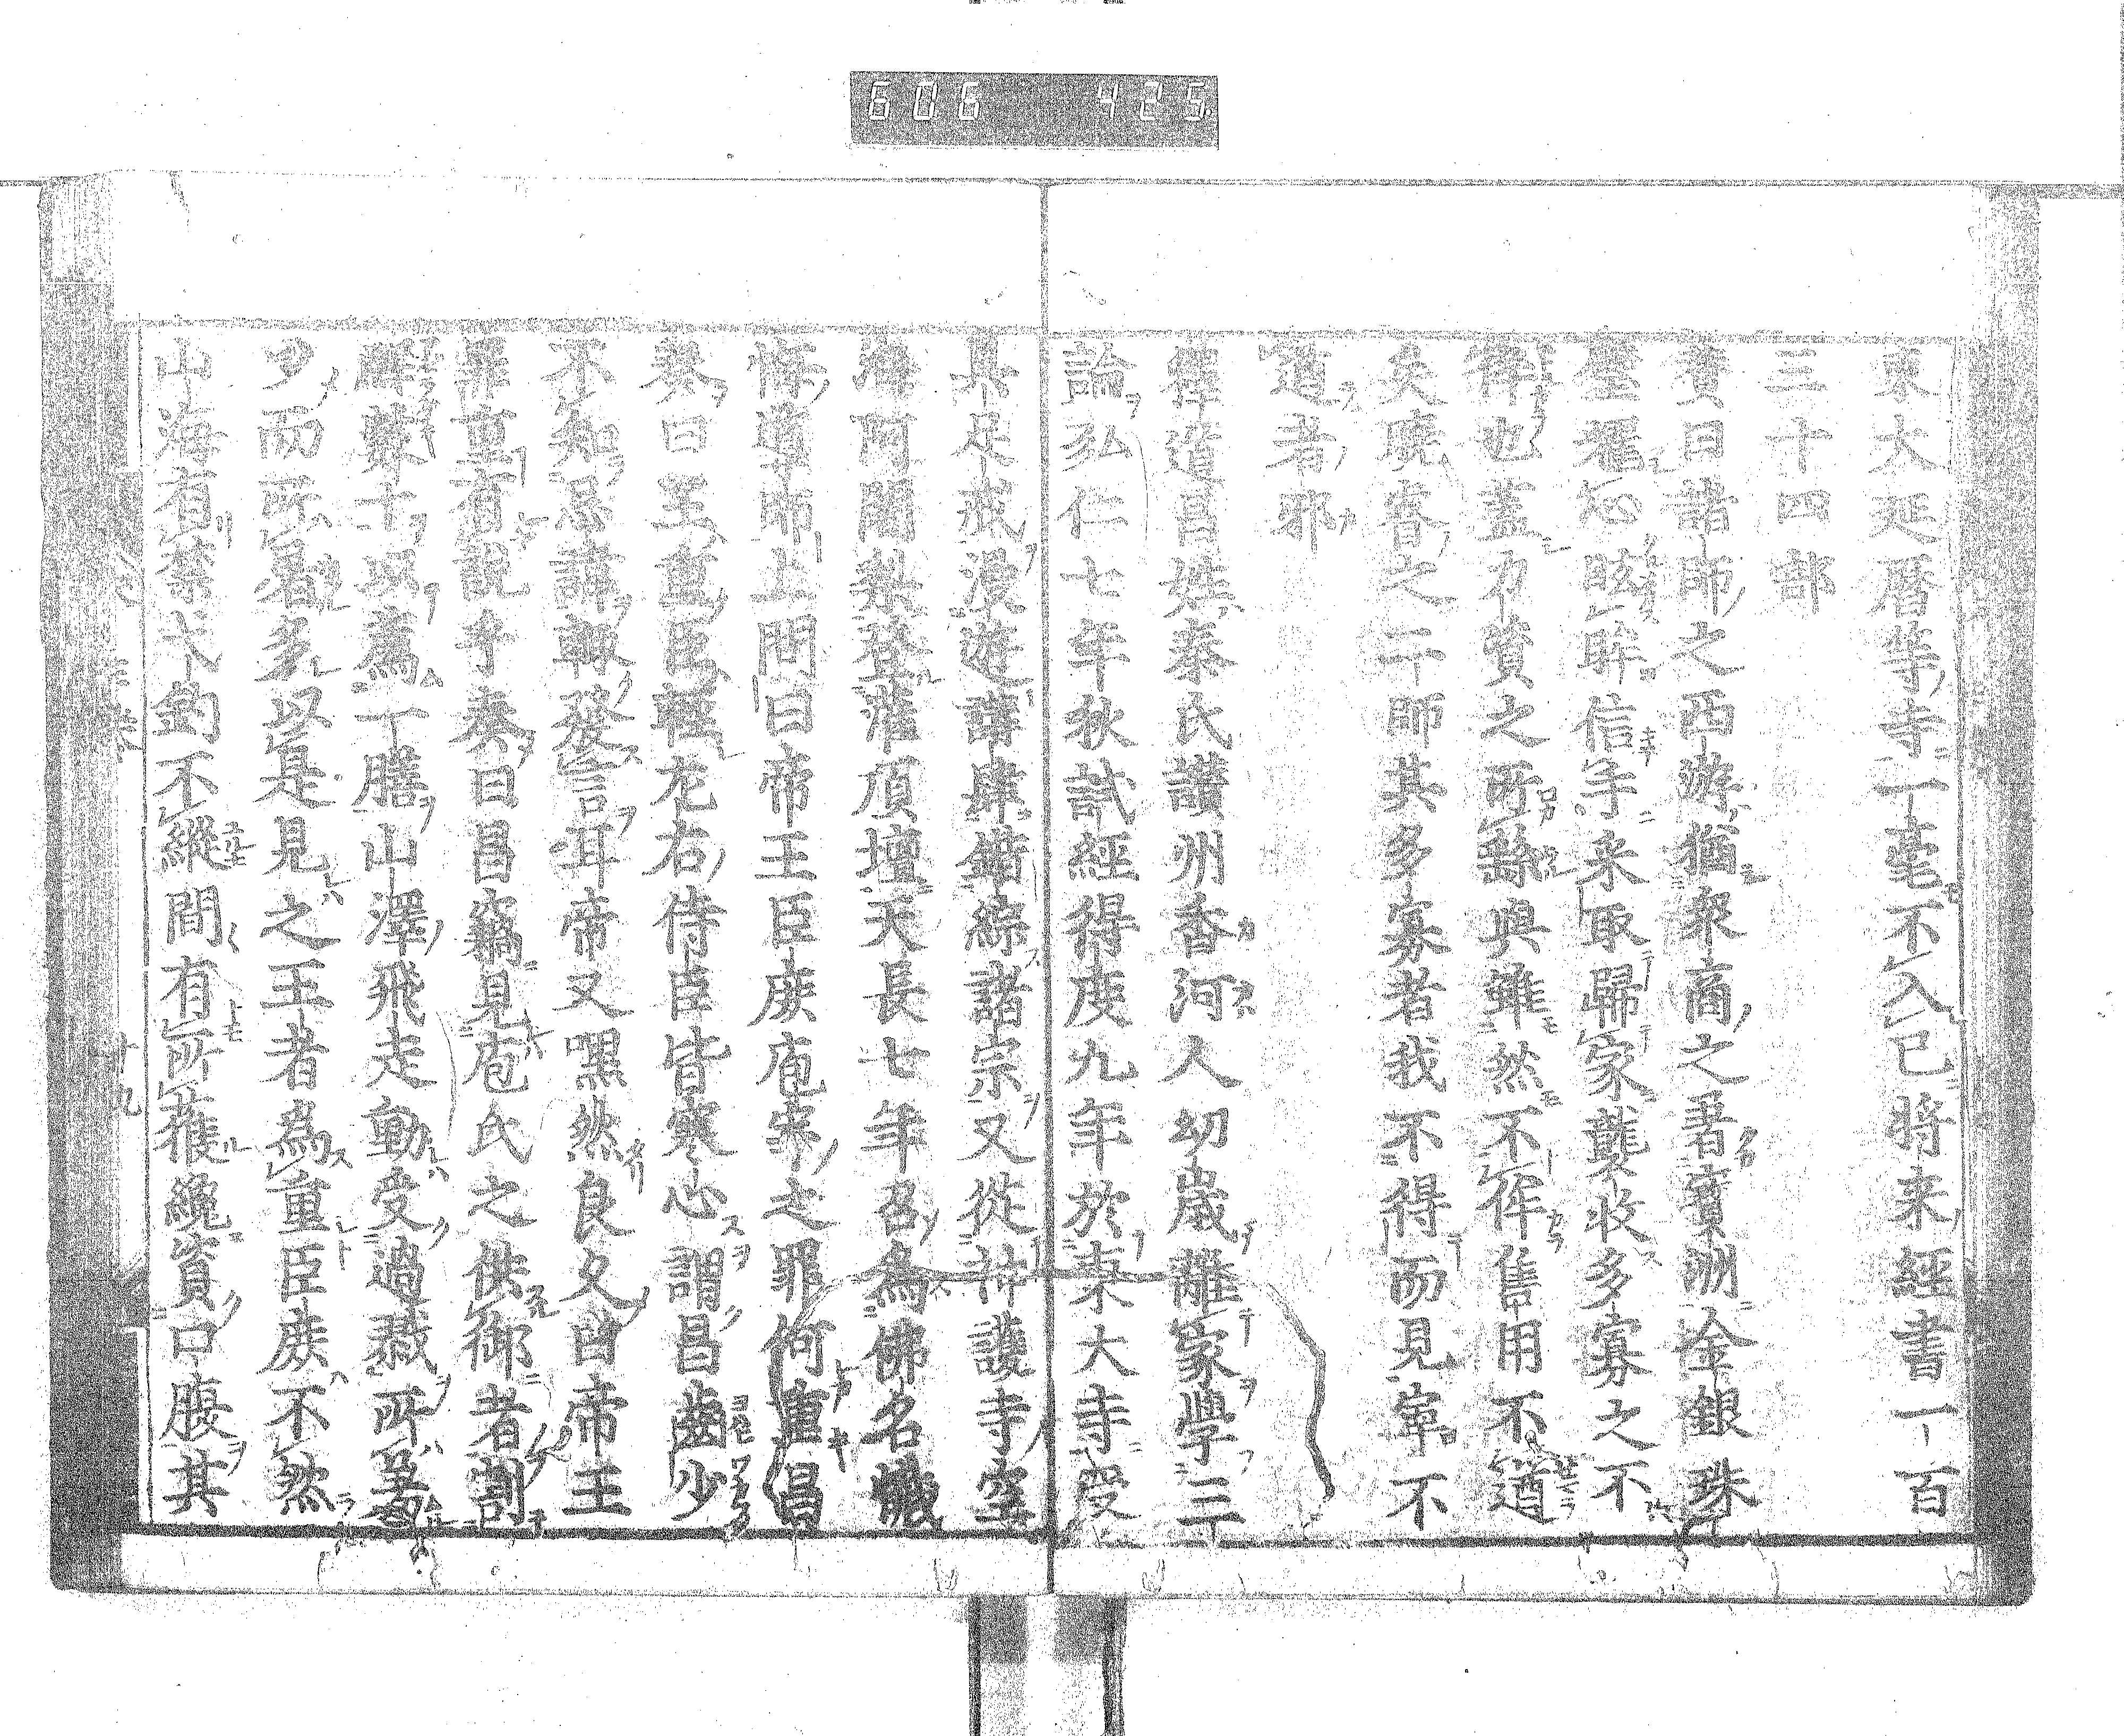 606 425
東大延暦等寺一毫不入已將来經書一百
三十四部
賛曰諸師之西游猶衆商之著寳洲金銀珠
璧櫂心眩眸信手采取歸家襲收多寡之不
侔也蓋力質之所繇與雖然不侔售用不遒
矣曉睿之二師其多寡者我不得而見寧不
遒者邪
釋道昌姓秦氏讃州香河人幼歳離家學三
論弘仁七年秋試經得度九年於東大寺受
具足戒浸遊講肆錯綜諸宗又從神護寺空
海阿闍梨登灌頂壇天長七年召為佛名懺
悔導師上問曰帝王臣庶庖宰之罪何重昌
奏曰王重臣輕左右侍臣皆寒心謂昌齒少
不知忌諱輙發言耳帝又黑然良久曰帝王
罪重有說乎奏曰昌竊見庖氏之供御者割
解數十以為一膳山澤飛走動受過戮所業
少而所暑多以是見之王者為重臣庶不然
山海有禁弋釣不縱間有所獲纔資口腹其
十九